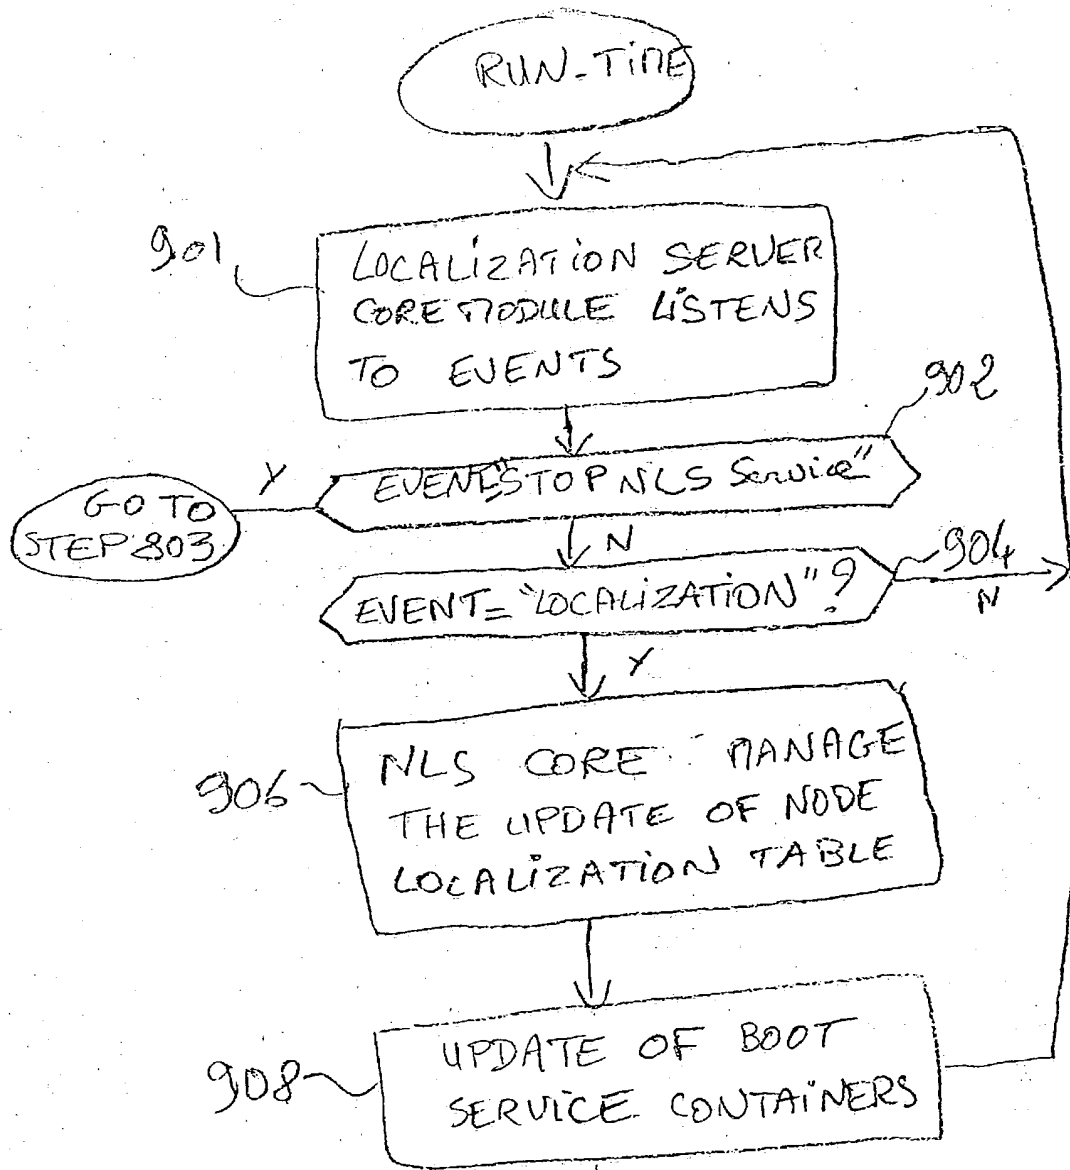 RUN-TIME
901
LOCALIZATION SERVER
CORE MODULE LISTENS
TO EVENTS
902
Y
EVENT="STOP NLS Service"
GO TO
STEP 803
N
904
EVENT="LOCALIZATION"?
N
Y
906
NLS CORE: MANAGE
THE UPDATE OF NODE
LOCALIZATION TABLE
908
UPDATE OF BOOT
SERVICE CONTAINERS